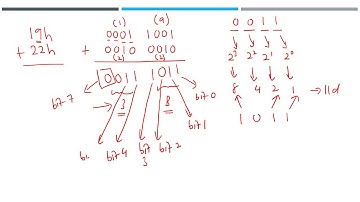 19h
+ 22h
(1) (9)
0001 1001
+ 0010 0010
(2) (2)
0011 1011
bit 7
3
8
bit 0
bit 1
bit 2
bit 3
bit 4
0 0 1 1
2³ 2² 2¹ 2⁰
8 4 2 1 → 11d
1 0 1 1